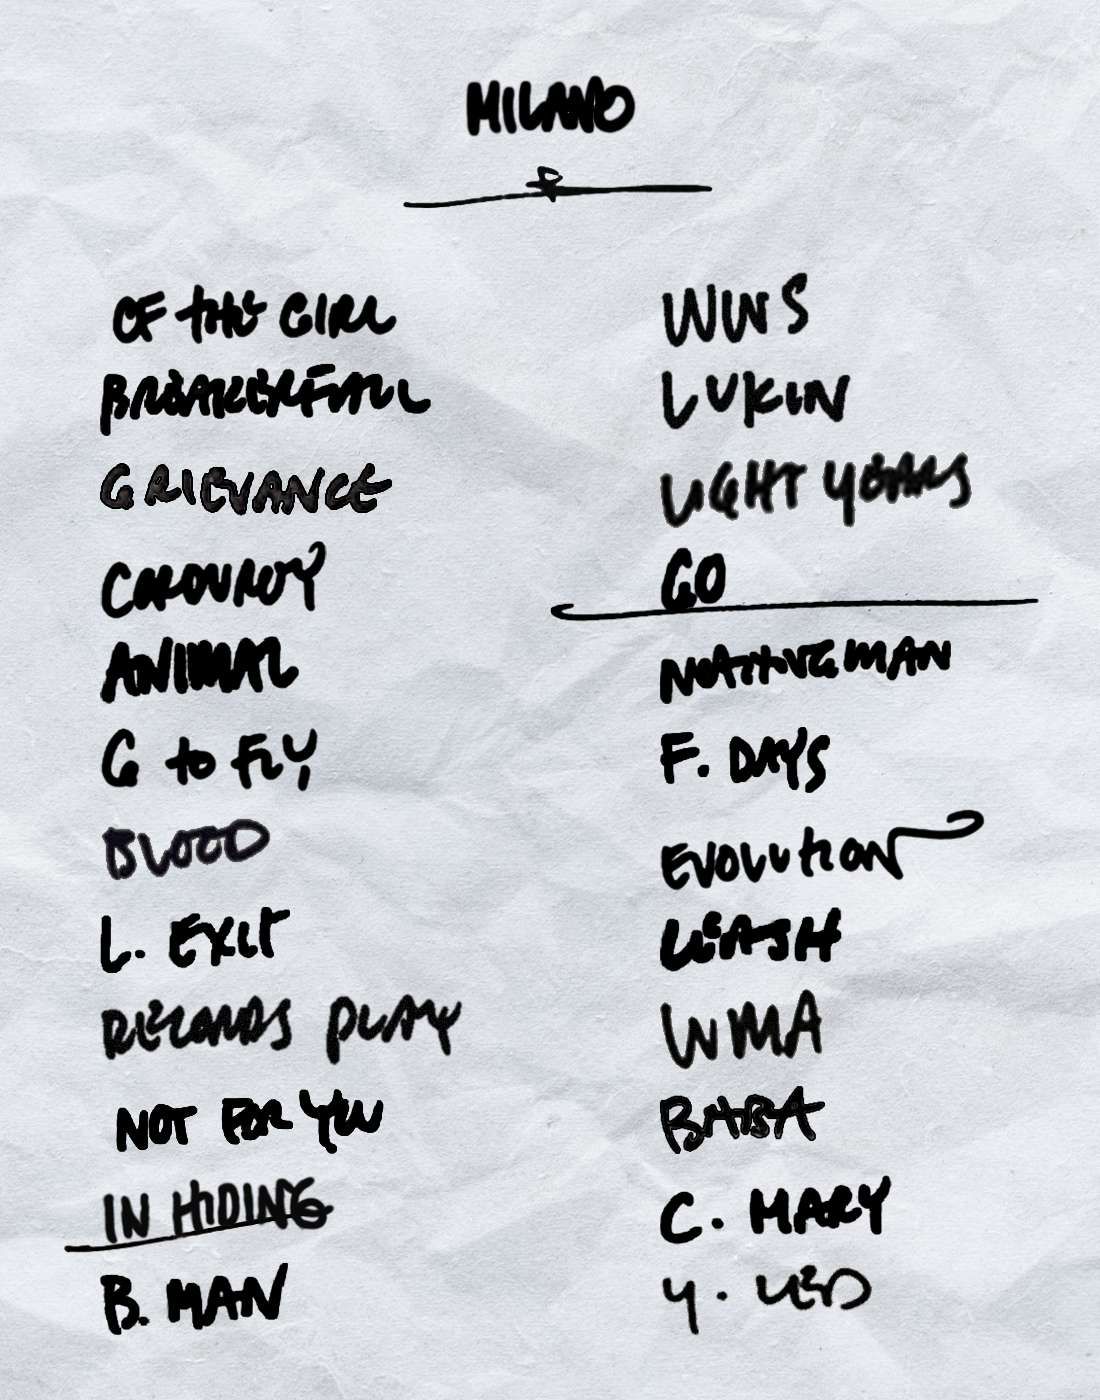 MILANO
OF THE GIRL
BREAKERFALL
GRIEVANCE
CORDUROY
ANIMAL
G TO FLY
BLOOD
L. EXIT
RECORDS PLAY
NOT FOR YOU
IN HIDING
B. MAN
WWS
LUKIN
LIGHT YEARS
GO
NOTHING MAN
F. DAYS
EVOLUTION
LEASH
WMA
BABA
C. MARY
Y. LED